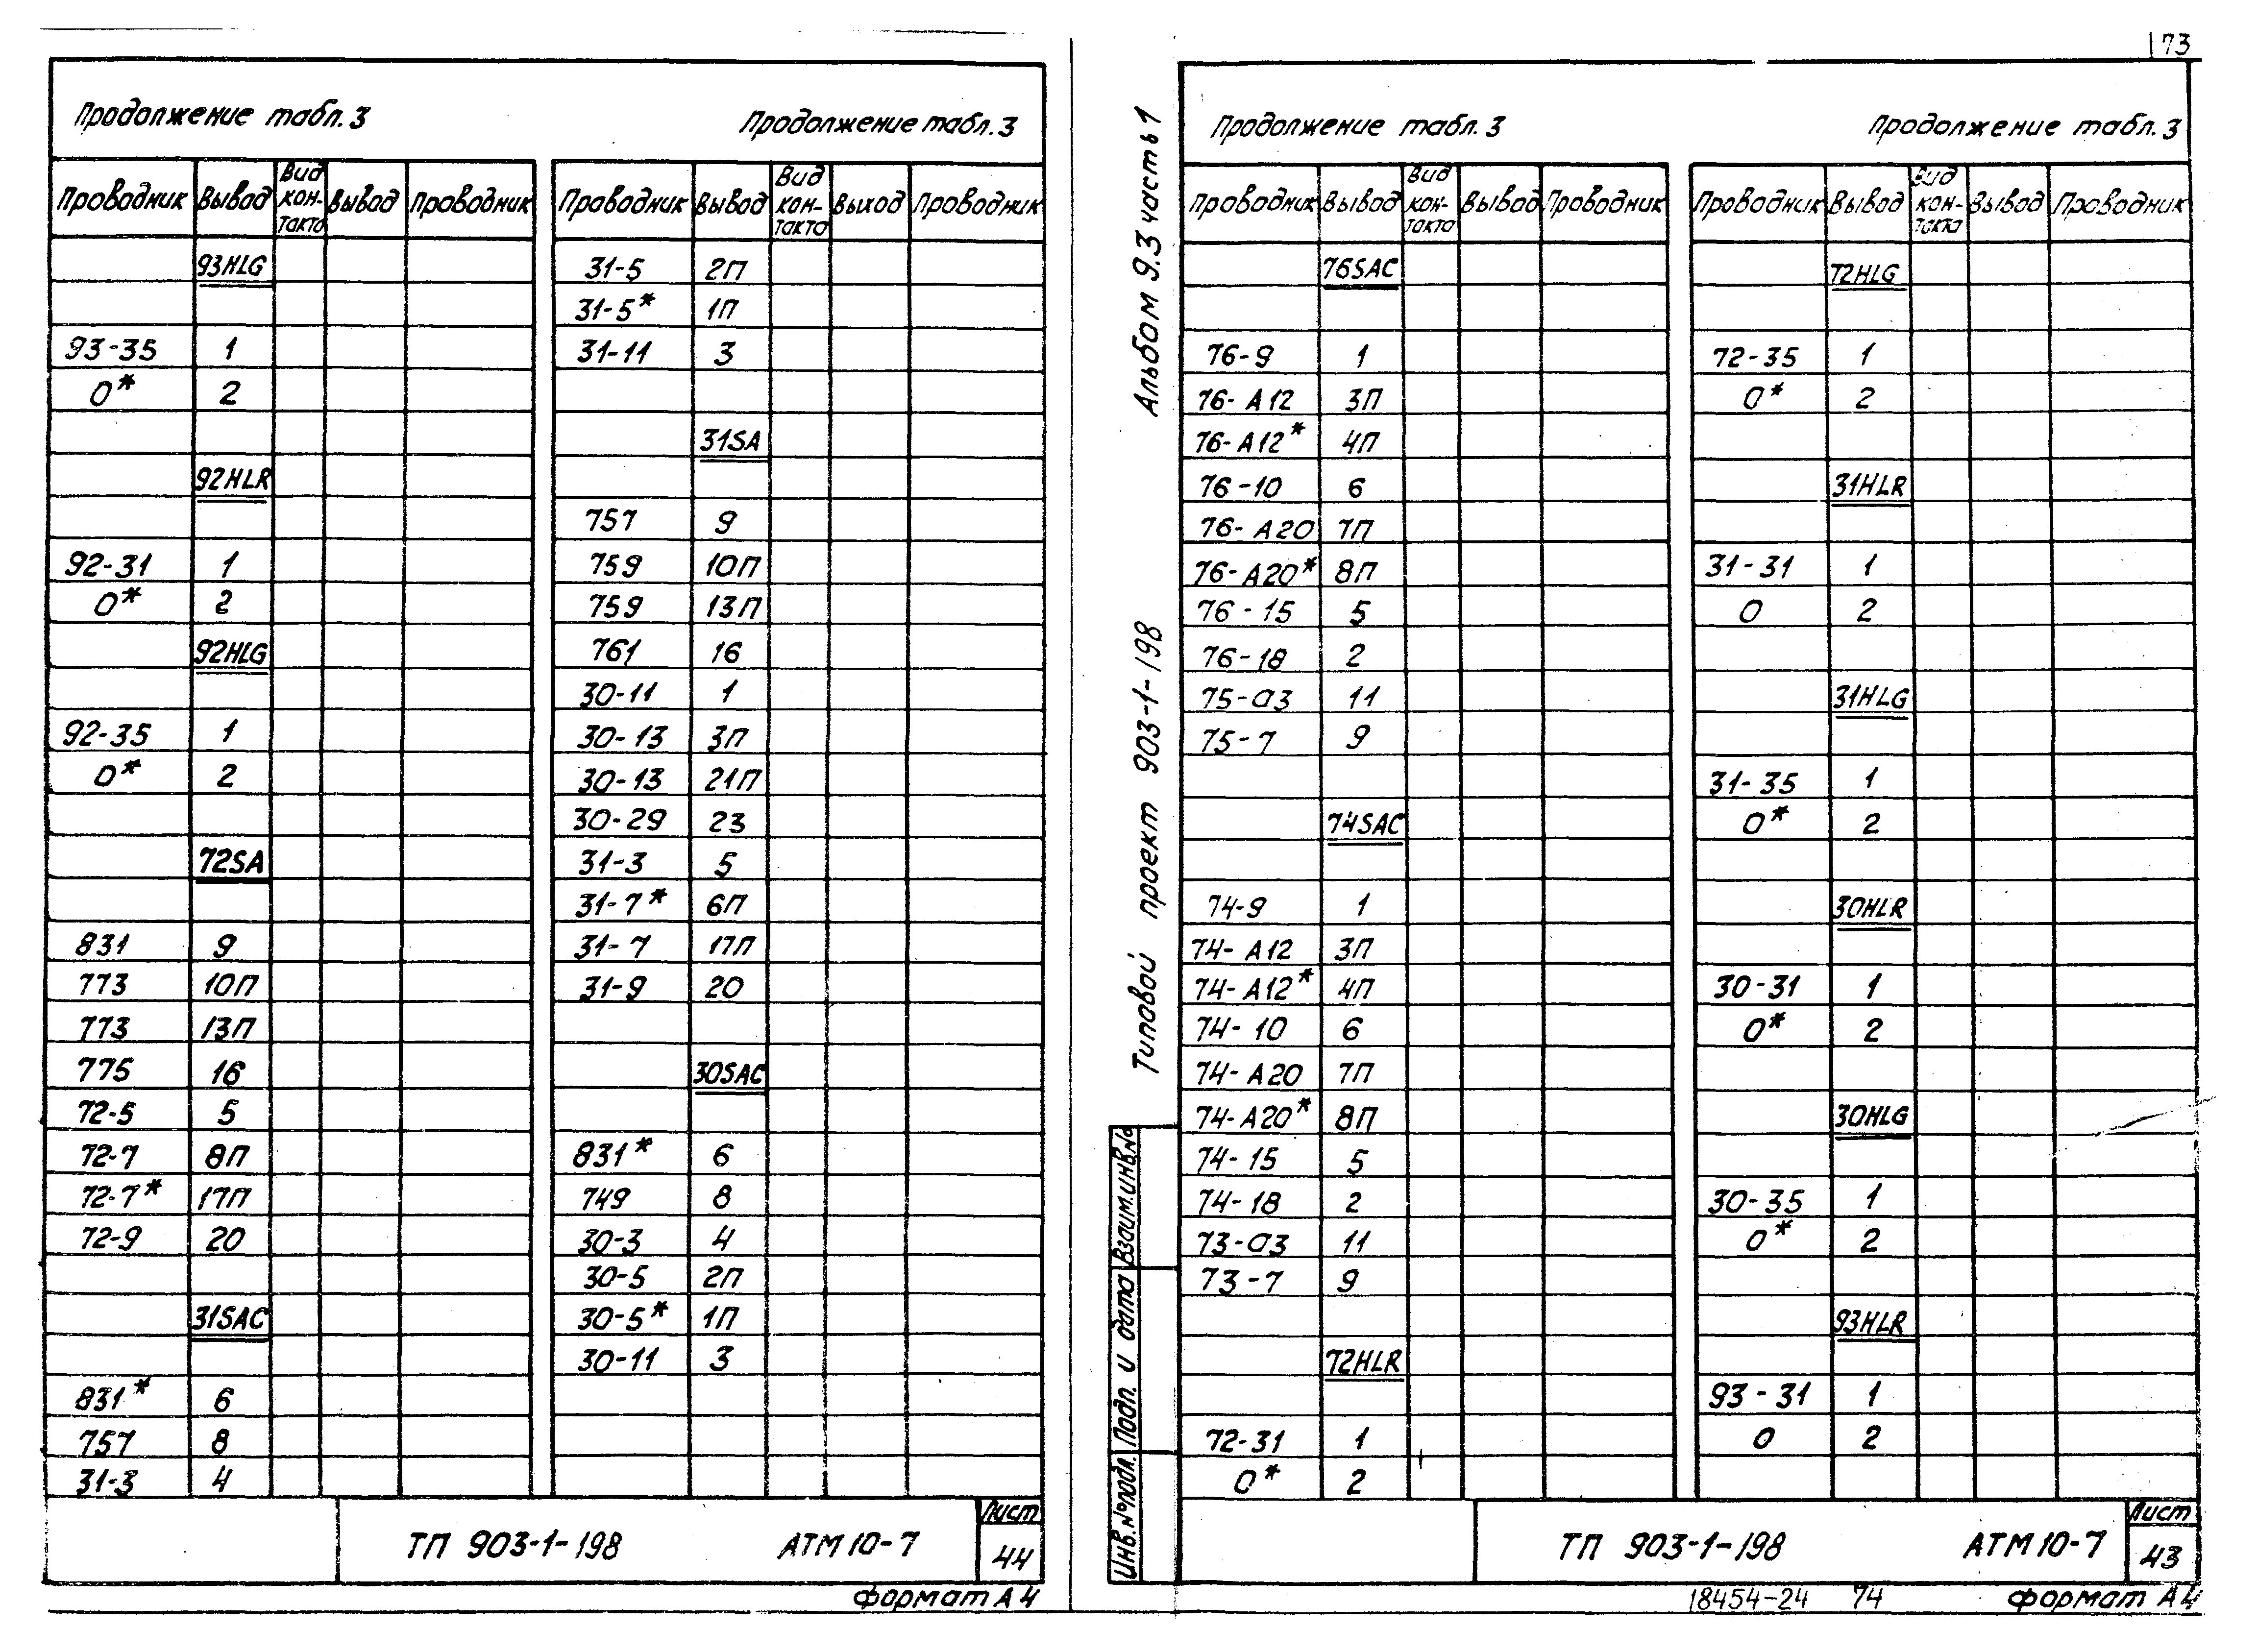 73
Продолжение табл.3
Проводник Вывод Вид кон-такта Вывод Проводник
93HLG
93-35 1
0* 2
92HLR
92-31 1
0* 2
92HLG
92-35 1
0* 2
72SA
831 9
773 10П
773 13П
775 16
72-5 5
72-7 8П
72-7* 17П
72-9 20
31SAC
831* 6
757 8
31-3 4
Продолжение табл.3
Проводник Вывод Вид кон-такта Выход Проводник
31-5 2П
31-5* 1П
31-11 3
31SA
757 9
759 10П
759 13П
761 16
30-11 1
30-13 3П
30-13 21П
30-29 23
31-3 5
31-7* 6П
31-7 17П
31-9 20
30SAC
831* 6
749 8
30-3 4
30-5 2П
30-5* 1П
30-11 3
ТП 903-1-198 АТМ10-7
Лист
44
Формат А4
Альбом 9.3 часть 1
Типовой проект 903-1-198
Взаим.инв.№
Подп. и дата
Инв.№подл.
Продолжение табл.3
Проводник Вывод Вид кон-такта Вывод Проводник
76SAC
76-9 1
76-А12 3П
76-А12* 4П
76-10 6
76-А20 7П
76-А20* 8П
76-15 5
76-18 2
75-а3 11
75-7 9
74SAC
74-9 1
74-А12 3П
74-А12* 4П
74-10 6
74-А20 7П
74-А20* 8П
74-15 5
74-18 2
73-а3 11
73-7 9
72HLR
72-31 1
0* 2
Продолжение табл.3
Проводник Вывод Вид кон-такта Вывод Проводник
72HLG
72-35 1
0* 2
31HLR
31-31 1
0 2
31HLG
31-35 1
0* 2
30HLR
30-31 1
0* 2
30HLG
30-35 1
0* 2
93HLR
93-31 1
0 2
ТП 903-1-198 АТМ10-7
Лист
43
18454-24 74 Формат А4